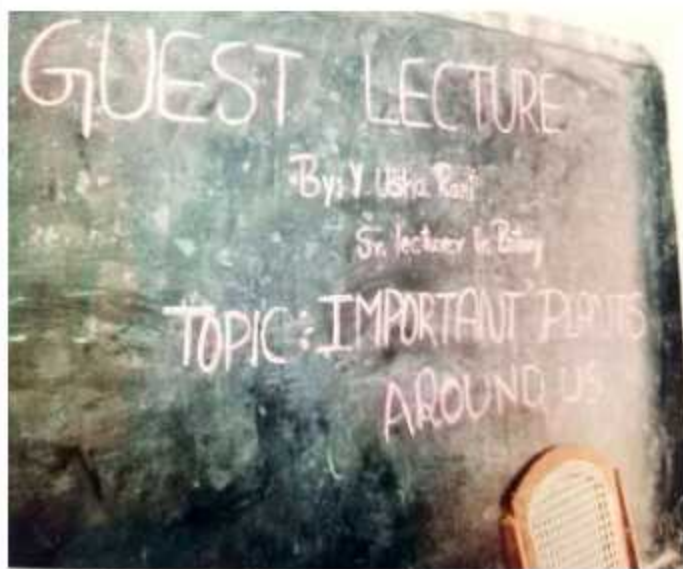 GUEST LECTURE
By: Y. Usha Rani
Sr. lecturer in Botany
TOPIC: IMPORTANT PLANTS
AROUND US